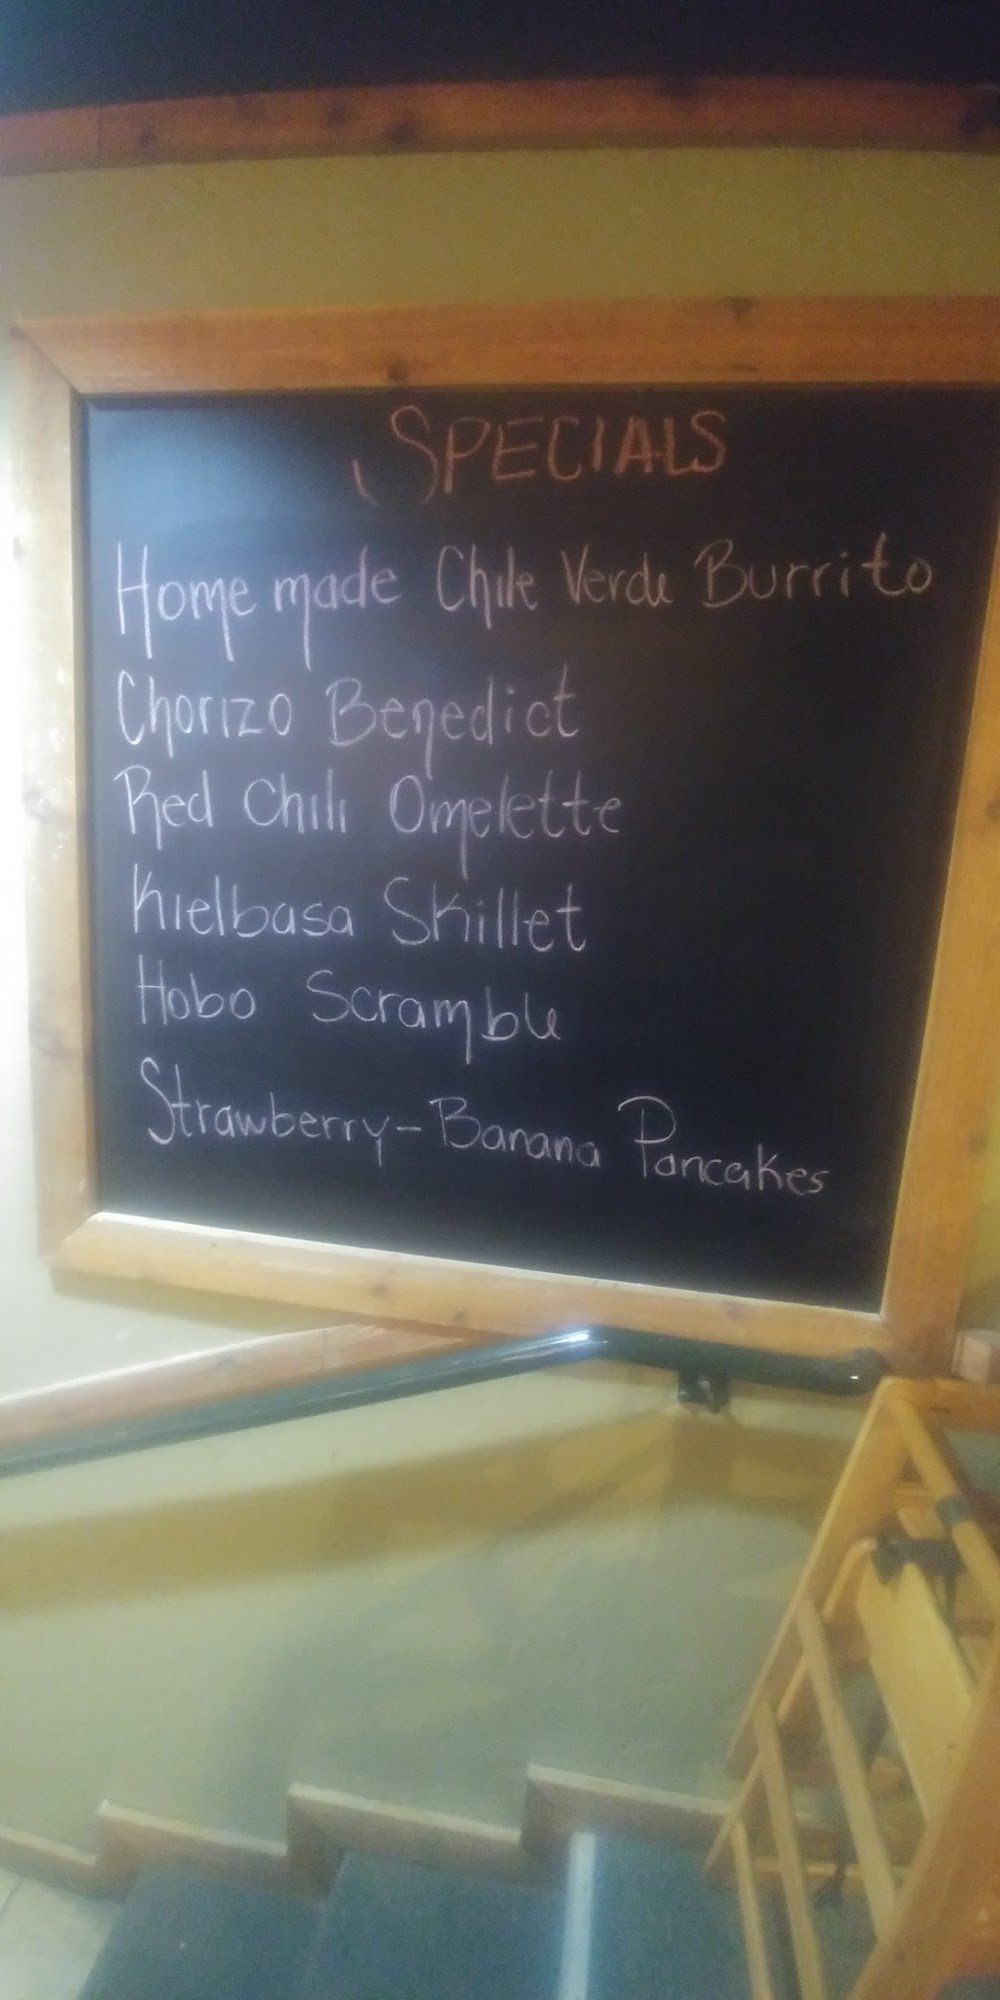 SPECIALS
Home made Chile Verde Burrito
Chorizo Benedict
Red Chili Omelette
Kielbasa Skillet
Hobo Scramble
Strawberry-Banana Pancakes